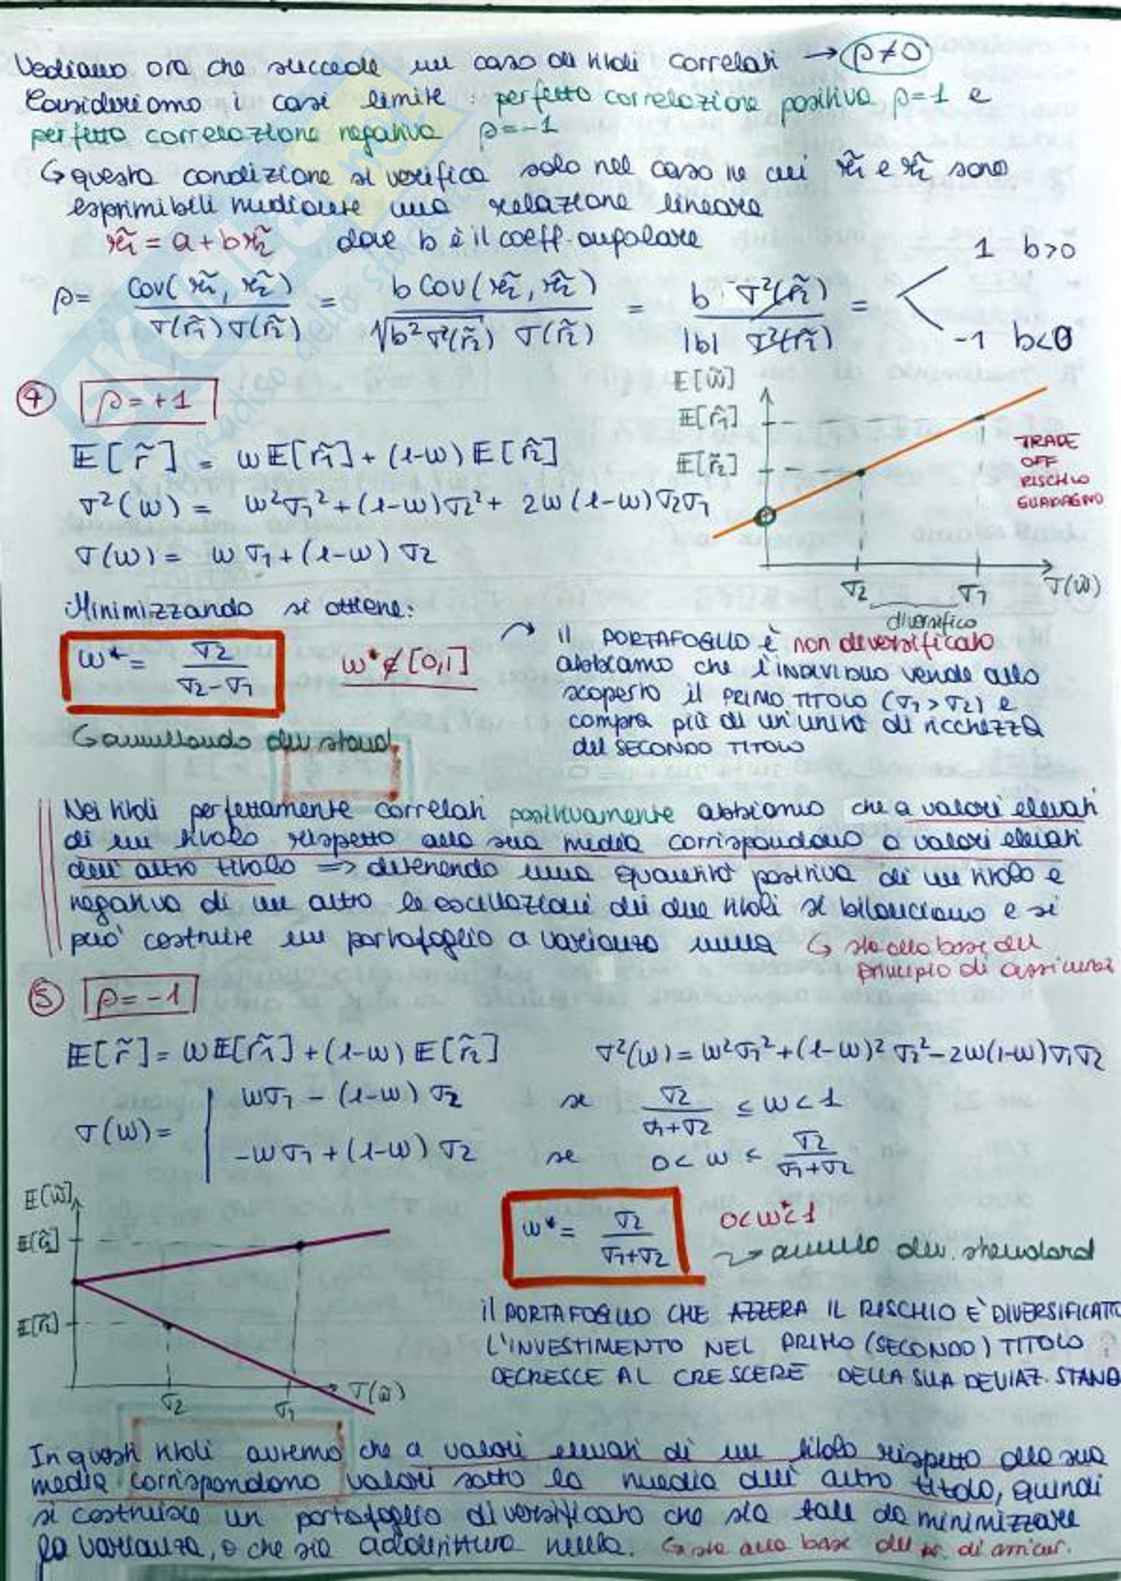 Vediamo ora che succede in caso di titoli correlati → ρ≠0
Consideriamo i casi limite: perfetta correlazione positiva ρ=1 e
perfetta correlazione negativa ρ=-1
↳ questa condizione si verifica solo nel caso in cui r̃₁ e r̃₂ sono
esprimibili mediante una relazione lineare
r̃₁ = a + b r̃₂ dove b è il coeff. angolare
ρ = Cov(r̃₁, r̃₂) / σ(r̃₁) σ(r̃₂) = b Cov(r̃₂, r̃₂) / √b²σ²(r̃₂) σ(r̃₂) = b σ²(r̃₂) / |b| σ²(r̃₂) = 1 b>0
-1 b<0
④ ρ = +1
𝔼[r̃] = w𝔼[r̃₁] + (1-w) 𝔼[r̃₂]
σ²(w) = w²σ₁² + (1-w)σ₂² + 2w(1-w)σ₂σ₁
σ(w) = wσ₁ + (1-w) σ₂
𝔼[w̃]
𝔼[r̃₁]
𝔼[r̃₂]
TRADE
OFF
RISCHIO
GUADAGNO
σ₂ σ₁ σ(w̃)
diversifico
Minimizzando si ottiene:
w* = σ₂ / σ₂-σ₁ w* ∉ [0,1]
↳ annullando dev stand
il PORTAFOGLIO è non diversificato
abbiamo che l'INDIVIDUO vende allo
scoperto il PRIMO TITOLO (σ₁>σ₂) e
compra più di un'unità di ricchezza
del SECONDO TITOLO
Nei titoli perfettamente correlati positivamente abbiamo che a valori elevati
di un titolo rispetto alla sua media corrispondono a valori elevati
dell'altro titolo => detenendo una quantità positiva di un titolo e
negativa di un altro le oscillazioni dei due titoli si bilanciano e si
può costruire un portafoglio a varianza nulla ↳ sta alla base del
principio di assicuraz
⑤ ρ = -1
𝔼[r̃] = w𝔼[r̃₁] + (1-w) 𝔼[r̃₂] σ²(w) = w²σ₁² + (1-w)² σ₂² - 2w(1-w)σ₁σ₂
σ(w) = wσ₁ - (1-w) σ₂ se σ₂ / σ₁+σ₂ ≤ w < 1
-wσ₁ + (1-w) σ₂ se 0 < w ≤ σ₂ / σ₁+σ₂
𝔼[w̃]
𝔼[r̃₂]
𝔼[r̃₁]
σ₂ σ₁ σ(w̃)
w* = σ₂ / σ₁+σ₂ 0<w*<1
↝ annullo dev. standard
il PORTAFOGLIO CHE AZZERA IL RISCHIO E' DIVERSIFICATO
L'INVESTIMENTO NEL PRIMO (SECONDO) TITOLO
DECRESCE AL CRESCERE DELLA SUA DEVIAZ. STAND
In questi titoli avremo che a valori elevati di un titolo rispetto alla sua
media corrispondono valori sotto la media dell'altro titolo, quindi
si costruisce un portafoglio diversificato che sia tale da minimizzare
la varianza, o che sia addirittura nulla. ↳ sta alla base del pr. di assicur.